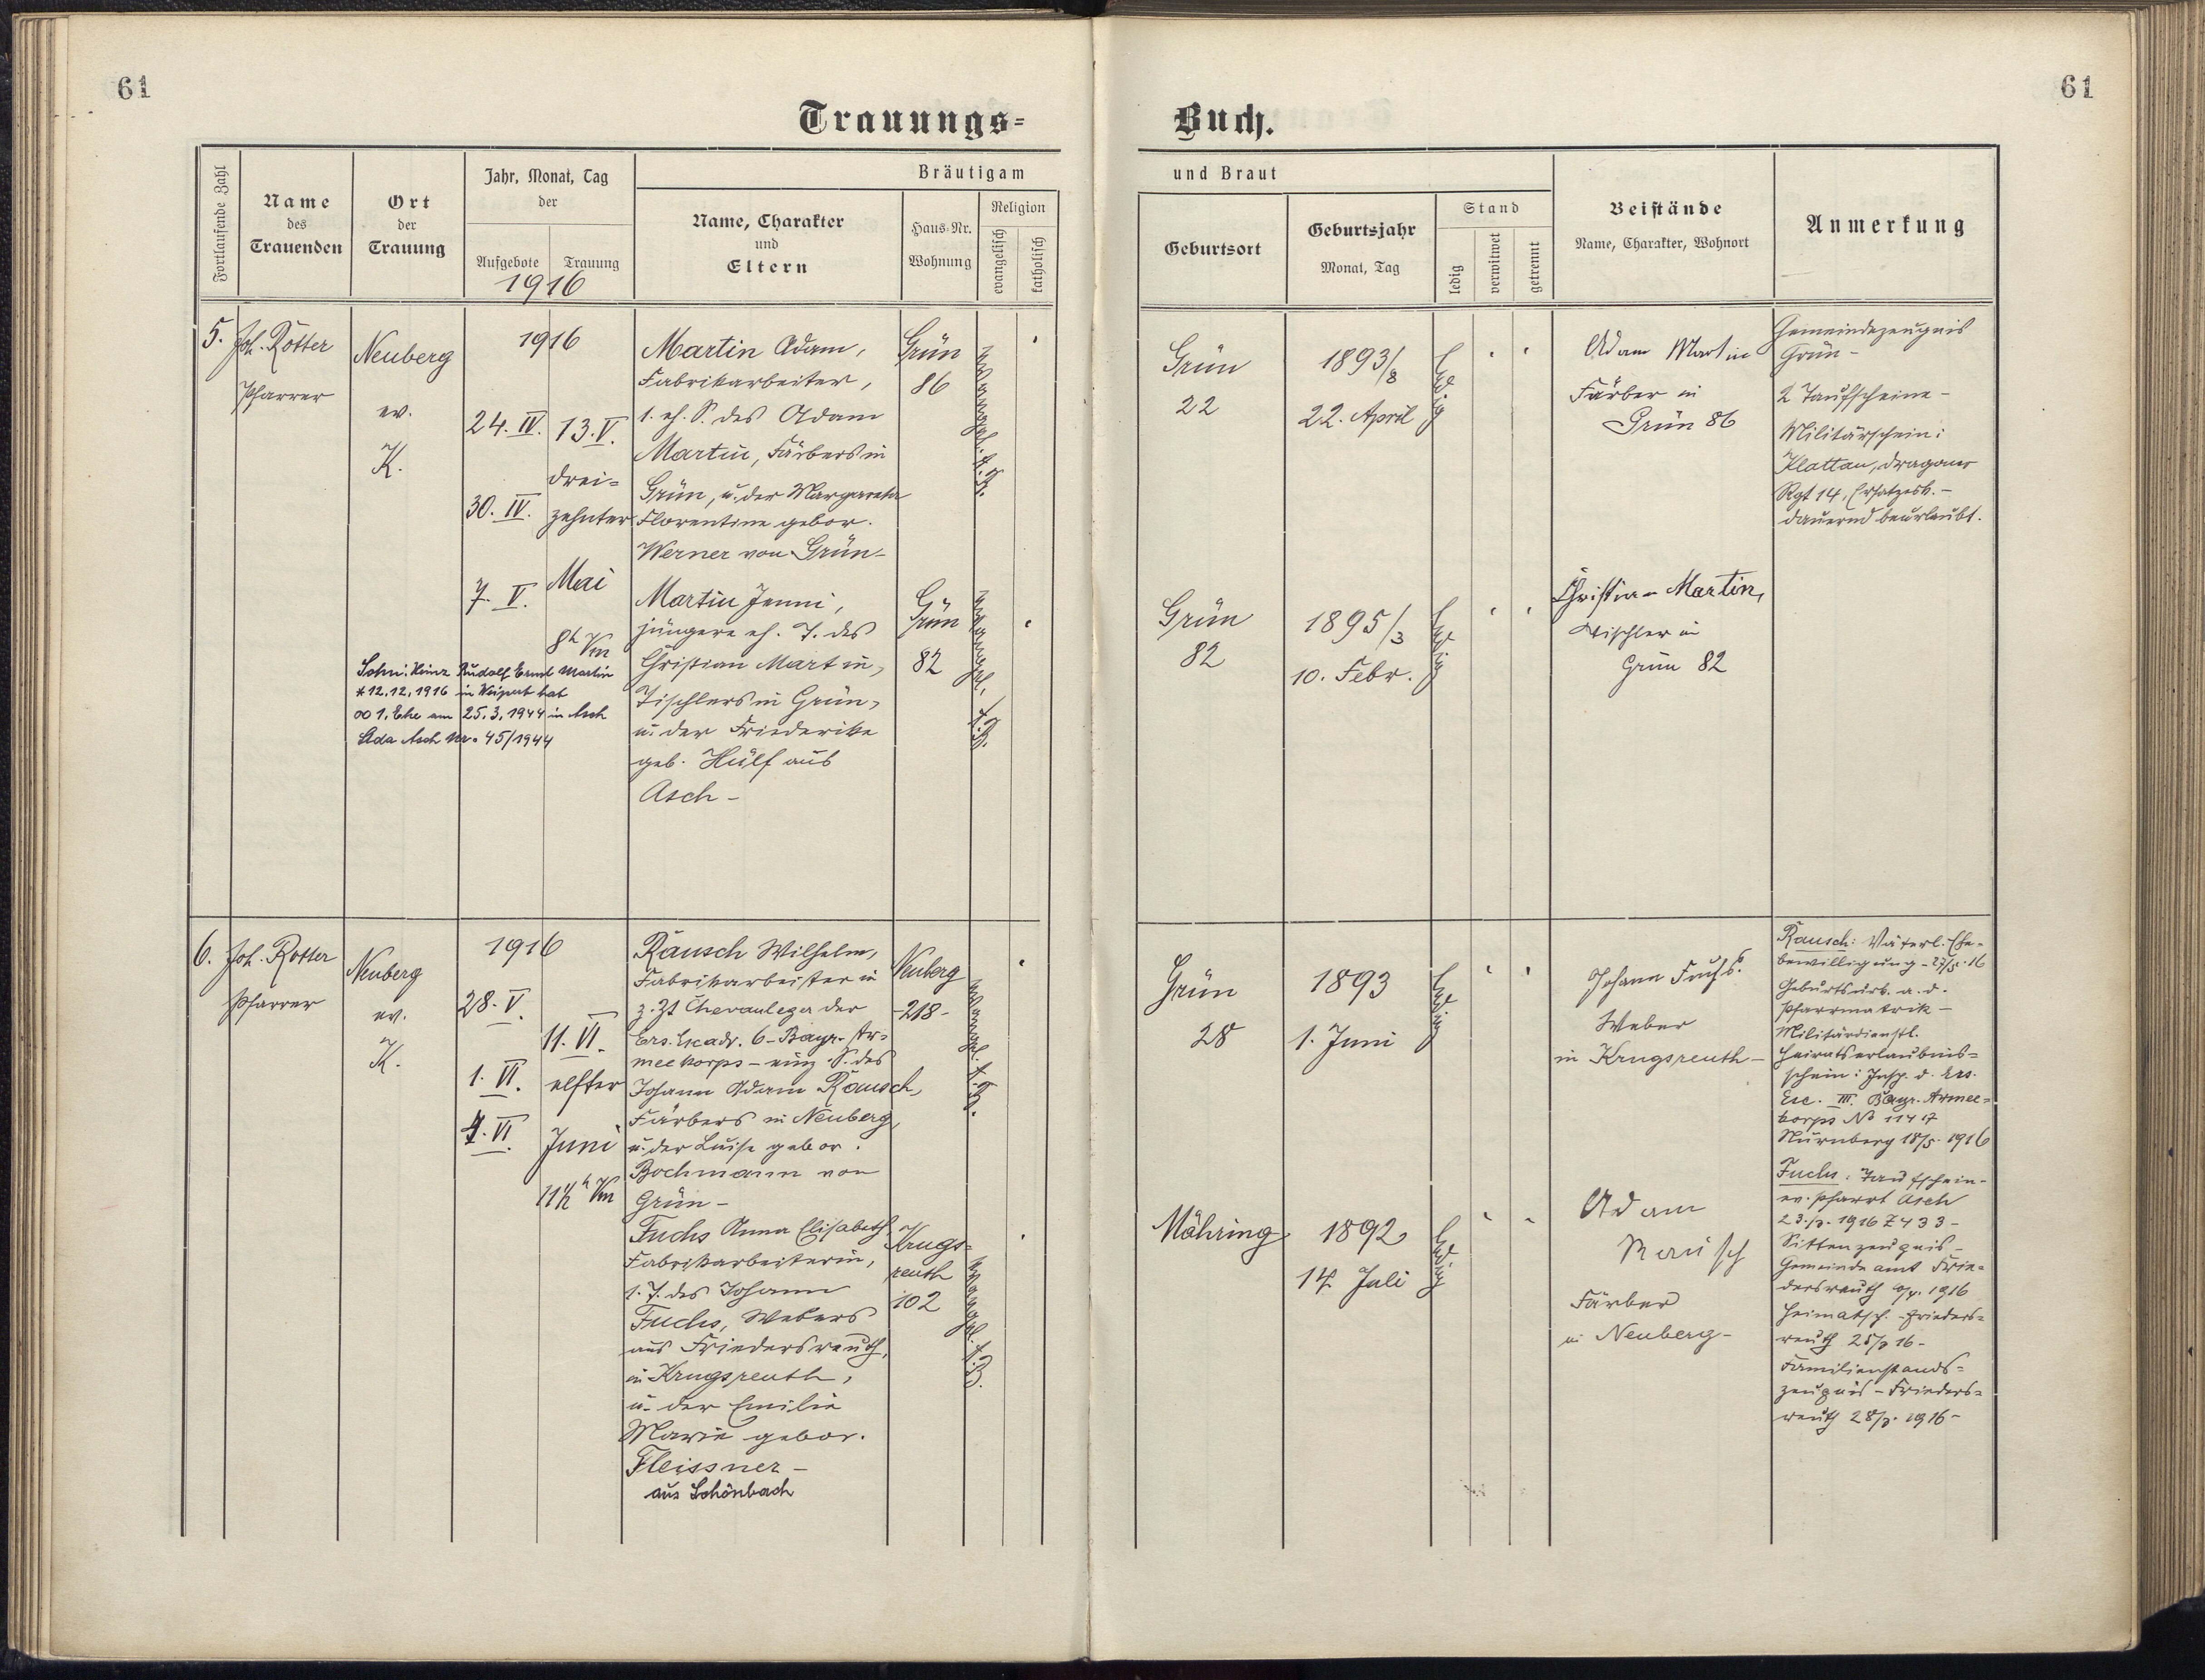 61
Trauungs-
Fortlaufende Zahl
Name
des
Trauenden
Ort
der
Trauung
Jahr, Monat, Tag
der
Aufgebote
Trauung
1916
Bräutigam
Name, Charakter
und
Eltern
Haus-Nr.
Wohnung
Religion
evangelisch
katholisch
5.
Joh. Rotter
Pfarrer
Neuberg
ev.
K.
1916
24. IV.
30. IV.
7. V.
13. V.
drei=
zehnter
Mai
8h Vm
Martin Adam,
Fabrikarbeiter,
1. eh. S. des Adam
Martin, Färbers in
Grün, u. der Margareta
Florentine gebor.
Werner von Grün-
Grün
86
evangel. A.B.
Martin Jenni,
jüngere eh. T. des
Christian Martin,
Tischlers in Grün,
u. der Friederike
geb. Hülf aus
Asch -
Grün
82
evangel. A.B.
Sohn: Heinz Rudolf Ernst Martin
* 12.12.1916 in hat
∞ 1. Ehe am 25.3.1944 in Asch
Asch Nr. 45/1944
6.
Joh. Rotter
Pfarrer
Neuberg
ev.
K.
1916
28. V.
1. VI.
4. VI.
11. VI.
elfter
Juni
11½h Vm
Rausch Wilhelm,
Fabrikarbeiter in
z. Zt Chevauleger der
Ers. Escadr. 6- Bayr. Ar=
meekorps - einz. S. des
Johann Adam Rausch,
Färbers in Neuberg,
u. der Luise gebor.
Bochmann von
Grün -
Neuberg
-218-
evangel. A.B.
Fuchs Anna Elisabeth
Fabrikarbeiterin,
1. T. des Johann
Fuchs, Webers
aus Friedersreuth,
in Krugsreuth,
u. der Emilie
Marie gebor.
Fleissner -
aus Schönbach
Krugs=
reuth
102
evangel. A.B.
61
Buch.
und Braut
Geburtsort
Geburtsjahr
Monat, Tag
Stand
ledig
verwitwet
getrennt
Beistände
Name, Charakter, Wohnort
Anmerkung
Grün
22
1893/8
22. April
ledig
Adam Martin
Färber in
Grün 86
Gemeindezeugnis
Grün -
2 Taufscheine -
Militärschein:
Klattau, Dragoner
Rgt 14, Ersatzesk. -
dauernd beurlaubt.
Grün
82
1895/3
10. Febr.
ledig
Christian Martin,
Tischler in
Grün 82
Grün
28
1893
1. Juni
ledig
Johann Fuchs
Weber
in Krugsreuth -
Rausch: Väterl. Ehe-
bewilligung - 27/5. 16
Geburtsurk. a. d.
Pfarrmatrik -
Militärdienstl.
Heiratserlaubnis=
schein: Insp. d. Ers.
Esc. III. Bayr. Armee=
korps No 11417
Nürnberg 18/5. 1916
Mähring
1892
14. Juli
ledig
Adam
Rausch
Färber
in Neuberg -
Fuchs: Taufschein-
ev. Pfarrt Asch
23/3. 1916 Z 433 -
Sittenzeugnis -
Gemeindeamt Frie=
dersreuth 1916
Heimatsch. - Frieders=
reuth 25/3 16 -
Familienstands=
zeugnis - Frieders=
reuth 28/3. 1916 -